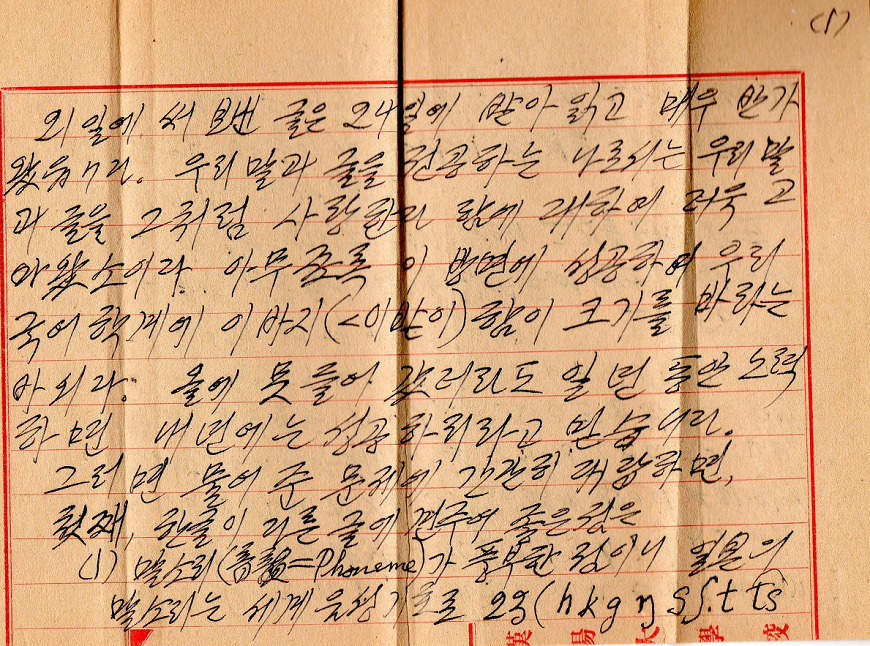 (1)
외일에 써 보낸 글은 24일에 받아 읽고 매우 반가
왔읍니다. 우리 말과 글을 전공하는 나로서는 우리 말
과 글을 그처럼 사랑한다 함에 대하여 더욱 고
마왔소이다. 아무쪼록 이 방면에 성공하여 우리
국어학계에 이바지(<이받이)함이 크기를 바라는
바외다. 올에 못 들어 갔더라도 일 년 동안 노력
하면 내년에는 성공하리라고 믿습니다.
그러면 물어 준 문제에 간단히 대답하면,
첫째, 한글이 다른 글에 견주어 좋은 점은
(1) 말소리(音韻=Phoneme)가 풍부한 점이니 일본의
말소리는 세계 음성기호로 29(h k g ŋ s ʃ t ts
漢 陽 大 學 校